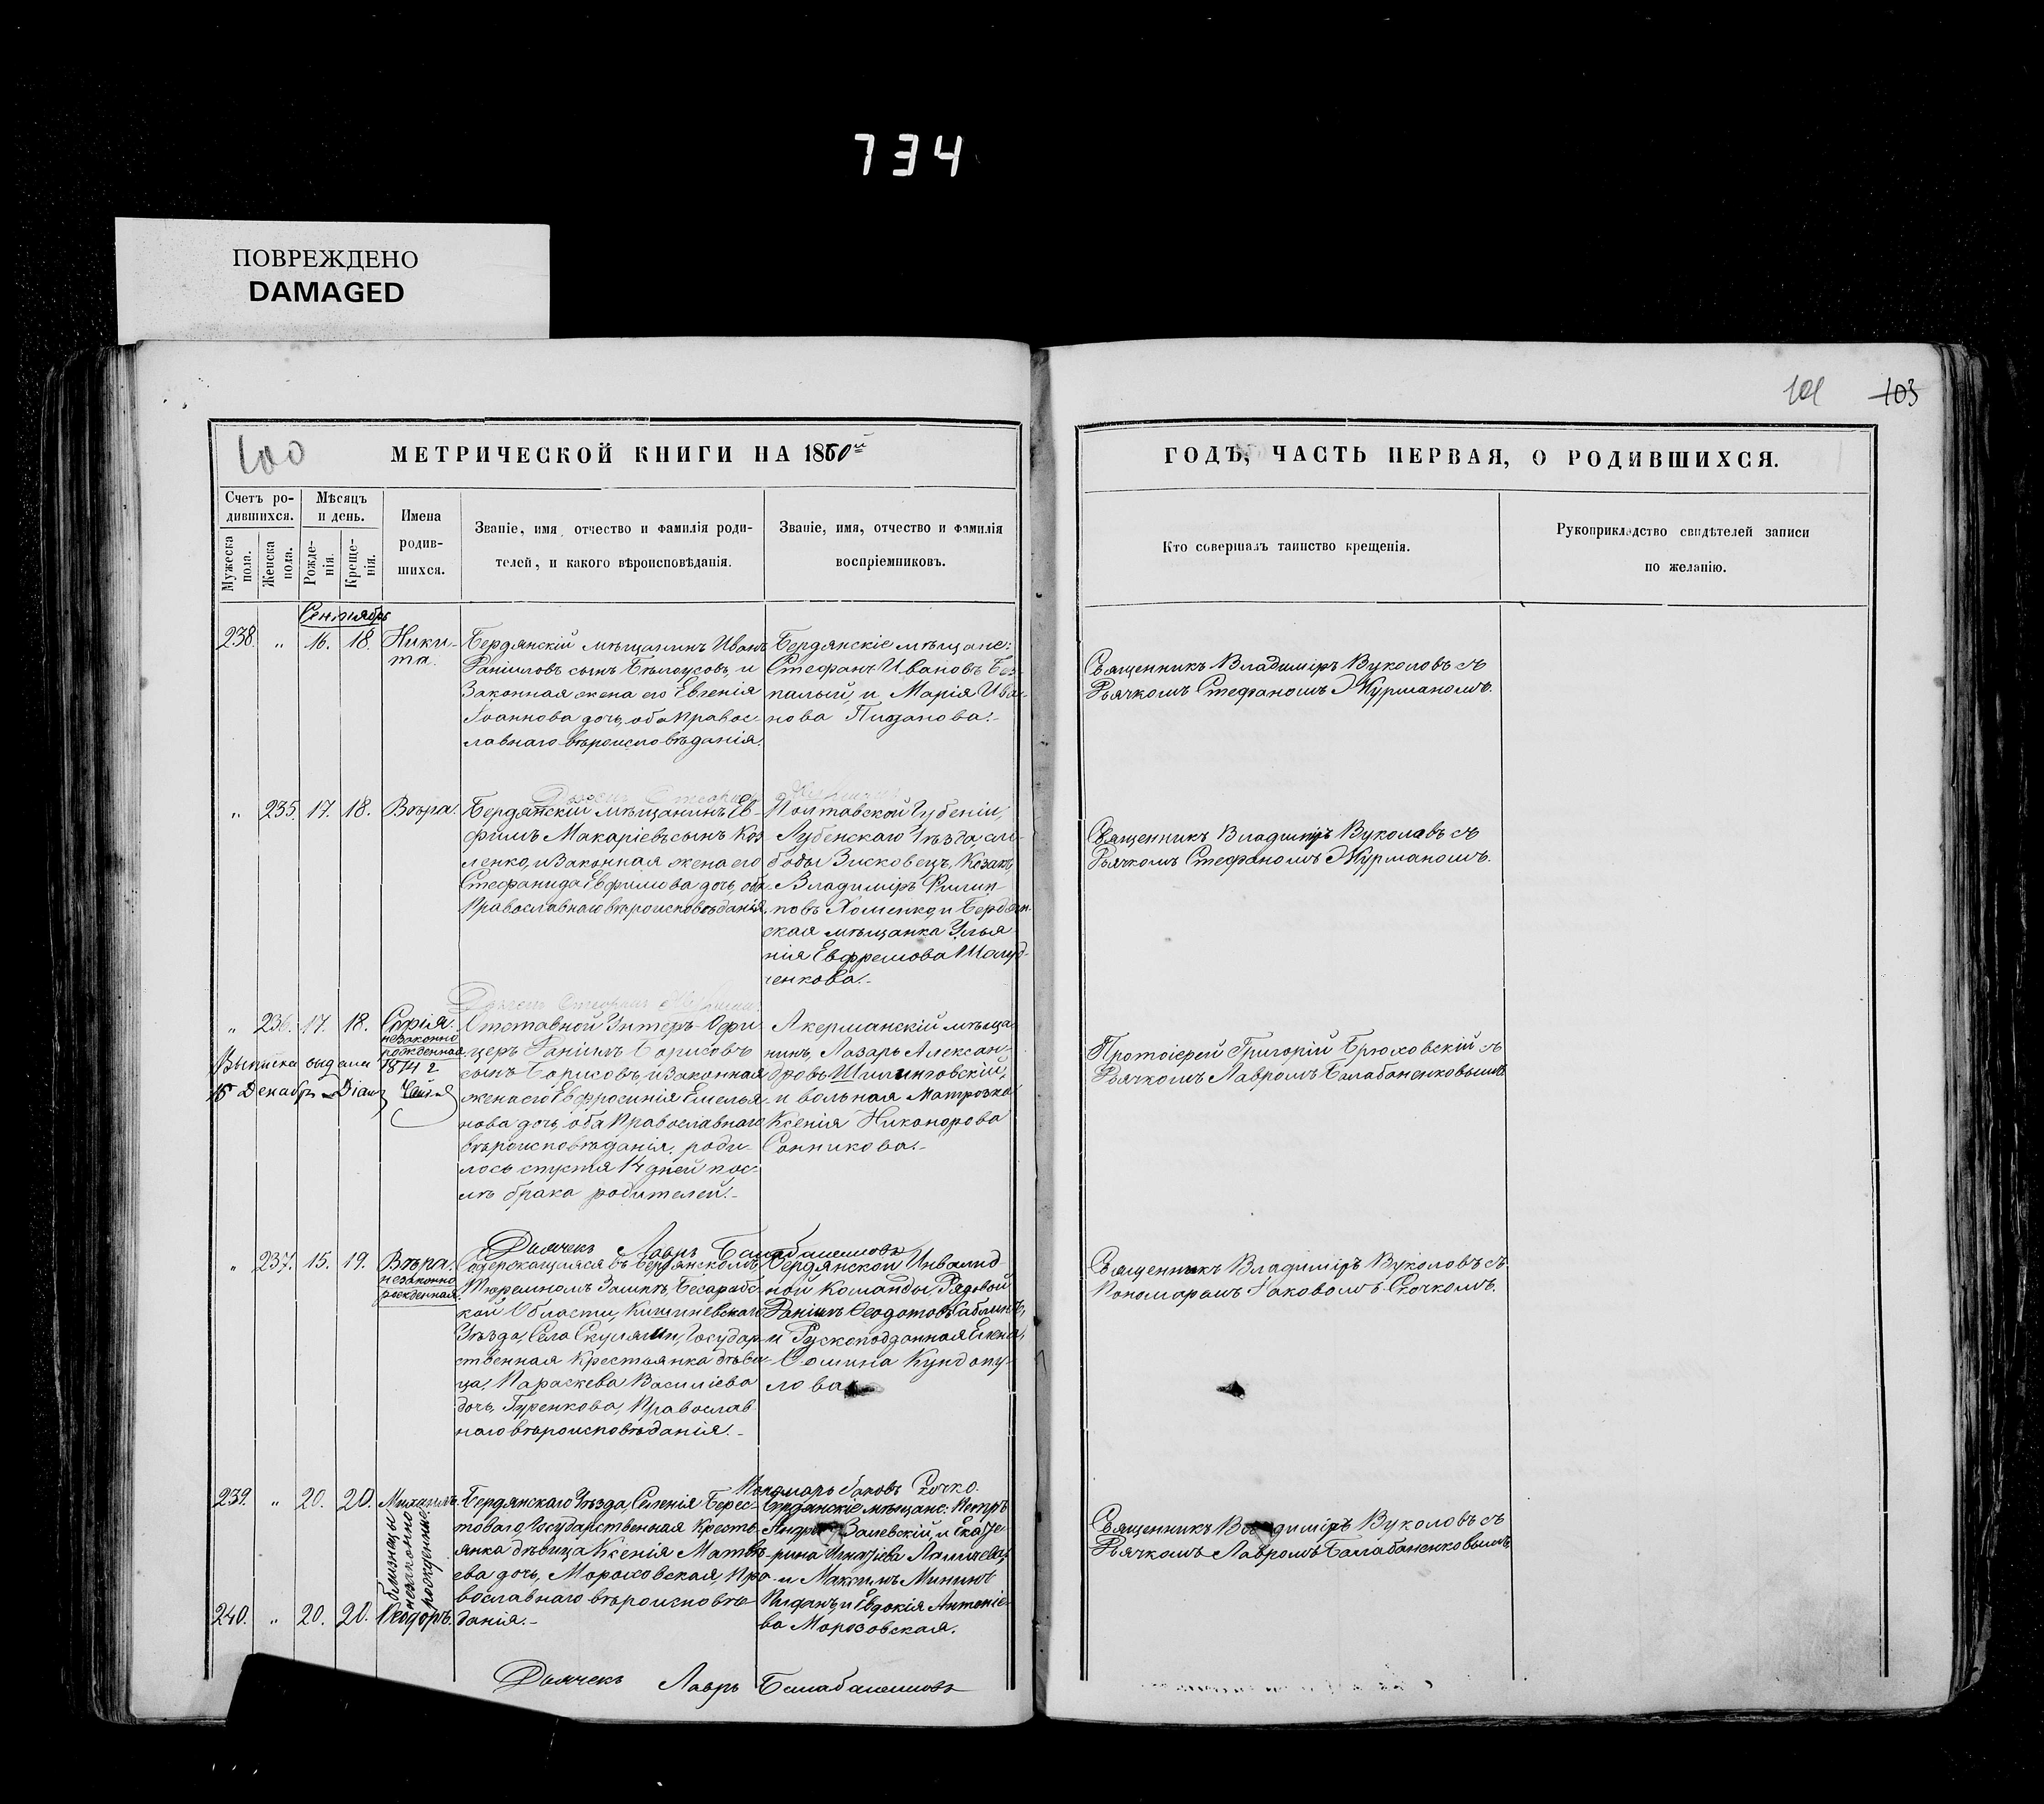 734
ПОВРЕЖДЕНО
DAMAGED
101 103
100
МЕТРИЧЕСКОЙ КНИГИ НА 1860й
ГОДЪ, ЧАСТЬ ПЕРВАЯ, О РОДИВШИХСЯ.
Счетъ ро-
дившихся.
Мужеска пола.
Женска пола.
Мѣсяцъ
и день.
Рожде-
нія.
Креще-
нія.
Имена
родив-
шихся.
Званіе, имя, отчество и фамилія роди-
телей, и какого вѣроисповѣданія.
Званіе, имя, отчество и фамилія
воспріемниковъ.
Кто совершалъ таинство крещенія.
Рукоприкладство свидѣтелей записи
по желанію.
Сентябрь
238. „ 16. 18. Ники-
та.
Бердянскій мѣщанинъ Иванъ
Даніиловъ сынъ Бѣлоусовъ, и
Законная жена его Евгенія
Іоаннова дочь, оба Правос-
лавнаго вѣроисповѣданія.
Бердянскіе мѣщане:
Стефанъ Ивановъ Без-
палый, и Марія Ива-
нова
Священникъ Владиміръ Вуколовъ съ
Дьячкомъ Стефаномъ Журманомъ.
„ 235. 17. 18. Вѣра.
Бердянскій мѣщанинъ Ев-
фимъ Макаріевъ сынъ Коз
ленко, и Законная жена его
Стефанида Ефимова дочь, оба
Православнаго вѣроисповѣданія.
Полтавской Губеніи,
Лубенскаго Уѣзда, сло-
боды Висковецъ, Козакъ
Владиміръ Филип-
повъ Хоменко, и Бердян-
ская мѣщанка Улья-
нія Евфремова
ченкова.-
Священникъ Владиміръ Вуколовъ съ
Дьячкомъ Стефаномъ Журманомъ.
„ 236. 17. 18. Софія.
незаконно
рожденная
Выписка выдана 1874 г
15 Декабря
Отставной Унтеръ-Офи
церъ Даніилъ Борисовъ
сынъ Борисовъ, и Законная
жена его Евфросинія Емелья
нова дочь, оба Православнаго
вѣроисповѣданія, роди-
лось спустя 14 дней пос-
лѣ брака родителей.-
Акерманскій мѣща-
нинъ, Лазарь Алексан-
дровъ Шилинговскій,
и вольная Матрозка
Ксенія Никонорова
Санникова.-
Протоіерей Григорій Брюховскій съ
Дьячкомъ Лавромъ Балабаненковымъ
Дьячекъ Лавръ Балабаненковъ
„ 237. 15. 19. Вѣра.
незаконно
рожденная.
Содержащаяся въ Бердянскомъ
Тюремномъ Замкѣ, Бесарабс-
кой Области, Кишиневскаго
Уѣзда, Села Скулянъ, Государ-
ственная Крестьянка дѣви-
ца, Параскева Василіева
дочь, Гуренкова, Православ
наго вѣроисповѣданія.-
Бердянской Инвалид
ной Команды, Рядовой
Даніилъ Ѳеодотовъ Саблинъ,
и Рускоподданная Елена
Ѳомина Кундопу-
лова.
Священникъ Владиміръ Вуколовъ съ
Пономаремъ Іаковомъ Скочкомъ.
Пономарь Іаковъ Скочко.
239. „ 20. 20. Михаилъ.
близнецы
незаконно
рожденные
240. „ 20. 20. Ѳеодоръ.
Бердянскаго Уѣзда, Селенія Берес-
товаго, Государственная Кресть-
янка дѣвица Ксенія Матвѣ-
ева дочь, Мороховская, Пра-
вославнаго вѣроисповѣ-
данія.-
Бердянскіе мѣщане: Петръ
Залевскій, и Екате-
рина Игнатіева
и Максимъ Мининъ
и Евдокія Антоніе-
ва Морозовская.
Священникъ Владиміръ Вуколовъ съ
Дьячкомъ Лавромъ Балабаненковымъ
Дьячекъ Лавръ Балабаненковъ